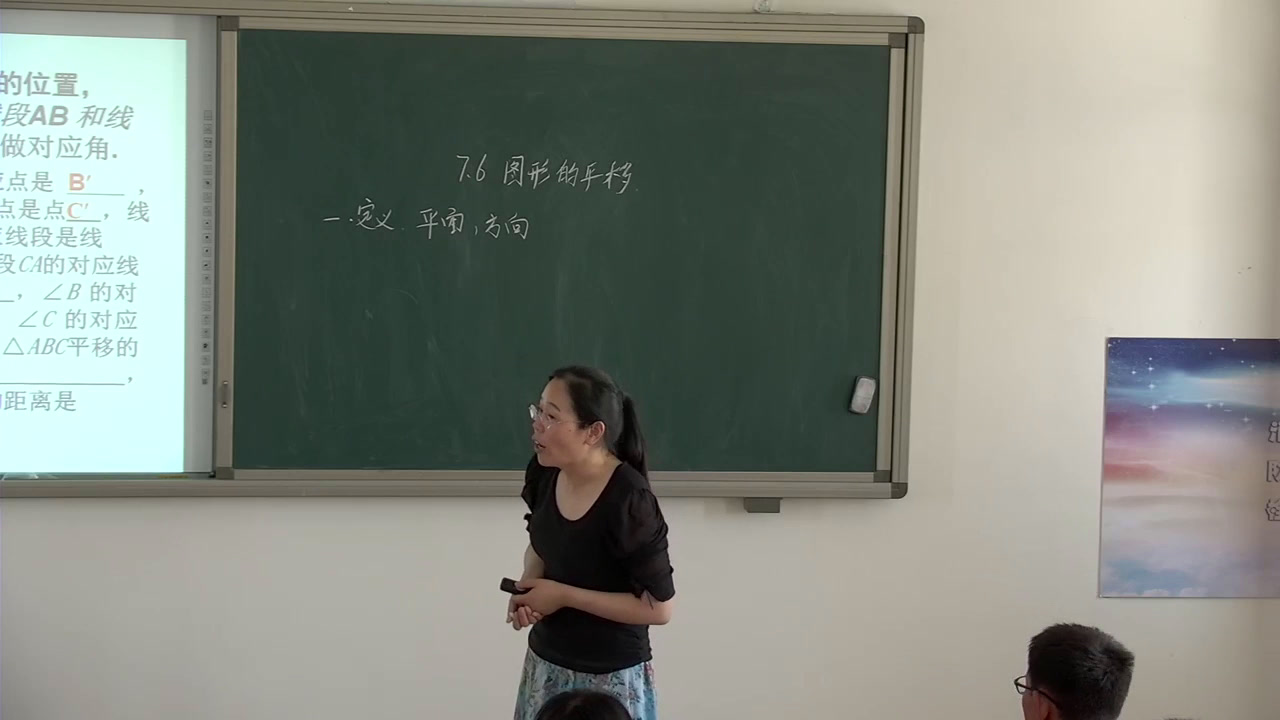 的位置,
段AB 和线
做对应角.
点是 B′ ,
点是点C′ ,线
线段是线
段CA的对应线
,∠B 的对
∠C 的对应
△ABC平移的
,
距离是
7.6 图形的平移
一.定义. 平面,方向